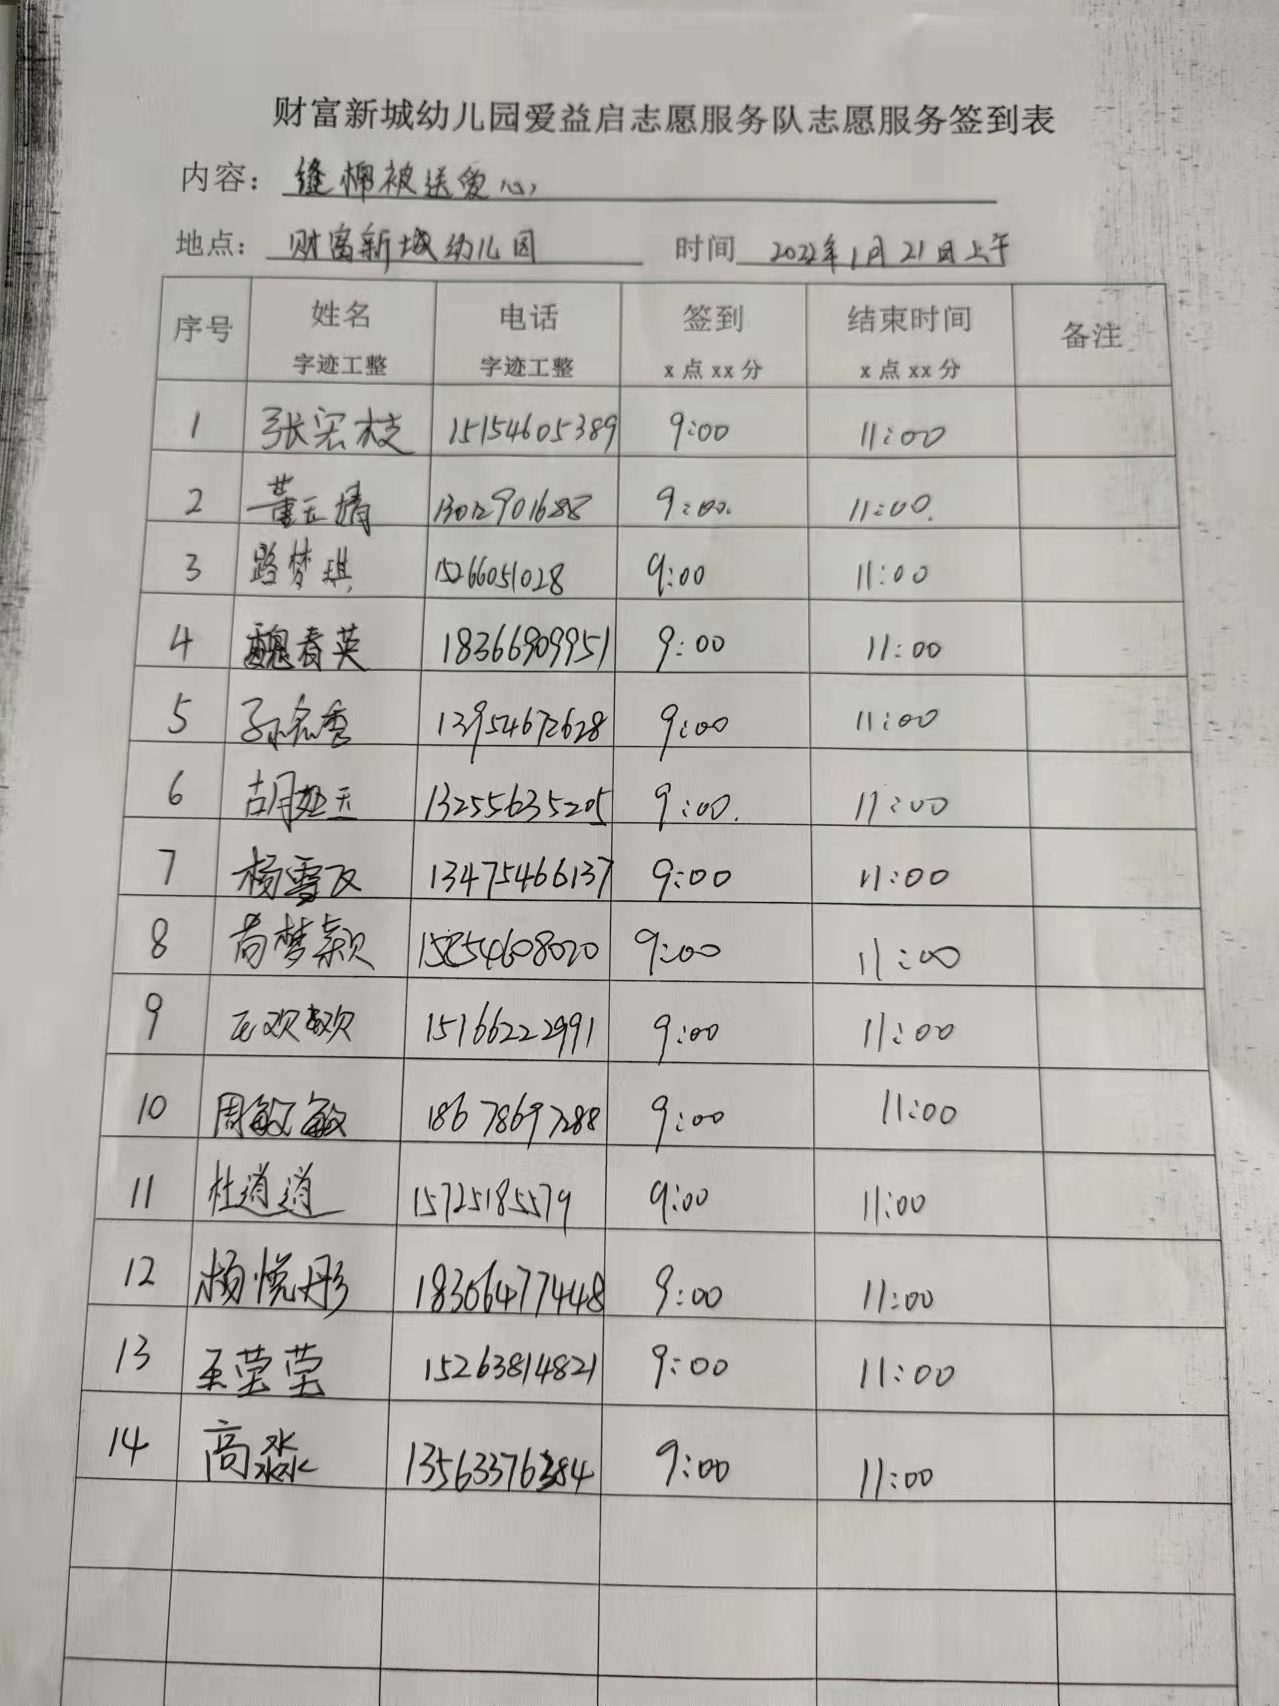 财富新城幼儿园爱益启志愿服务队志愿服务签到表
内容：缝棉被送爱心
地点：财富新城幼儿园 时间 2022年1月21日上午
序号 姓名 电话 签到 结束时间 备注
字迹工整 字迹工整 x点xx分 x点xx分
1 张宏枝 15154605389 9:00 11:00
2 董玉靖 13012901688 9:00. 11:00.
3 路梦琪 15266051028 9:00 11:00
4 魏春英 18366909951 9:00 11:00
5 孙秀 13954672628 9:00 11:00
6 胡玉 13255635205 9:00. 11:00
7 杨雪飞 13475466137 9:00 11:00
8 尚梦颖 15854608020 9:00 11:00
9 欢欢 15166222991 9:00 11:00
10 周敏敏 18678697288 9:00 11:00
11 杜道道 15725185579 9:00 11:00
12 杨悦彤 18306477448 9:00 11:00
13 王莹莹 15263814821 9:00 11:00
14 高淼 13563376384 9:00 11:00